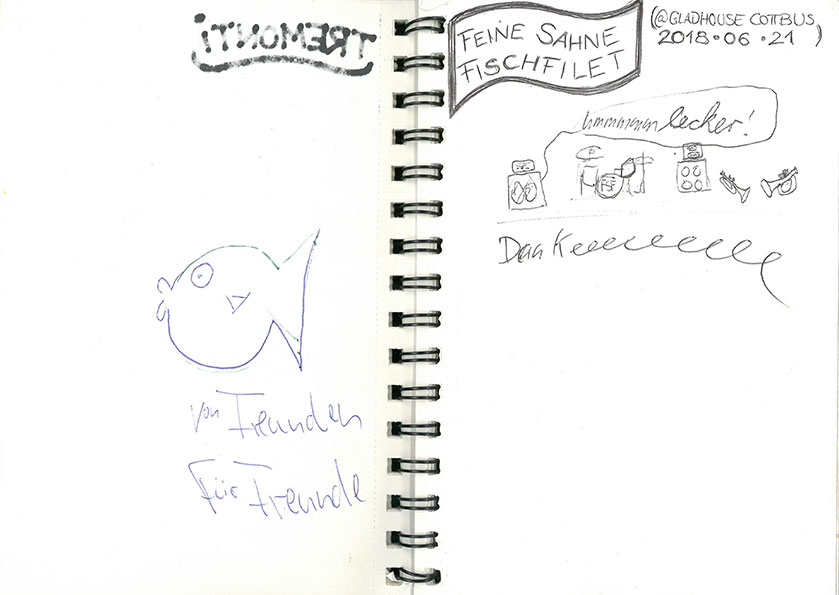 TREMONTi
von Freunden
Für Freunde
FEINE SAHNE
FISCHFILET
(@GLADHOUSE COTTBUS
2018•06•21 )
hmmmmmm lecker!
Dankeeeeeeee